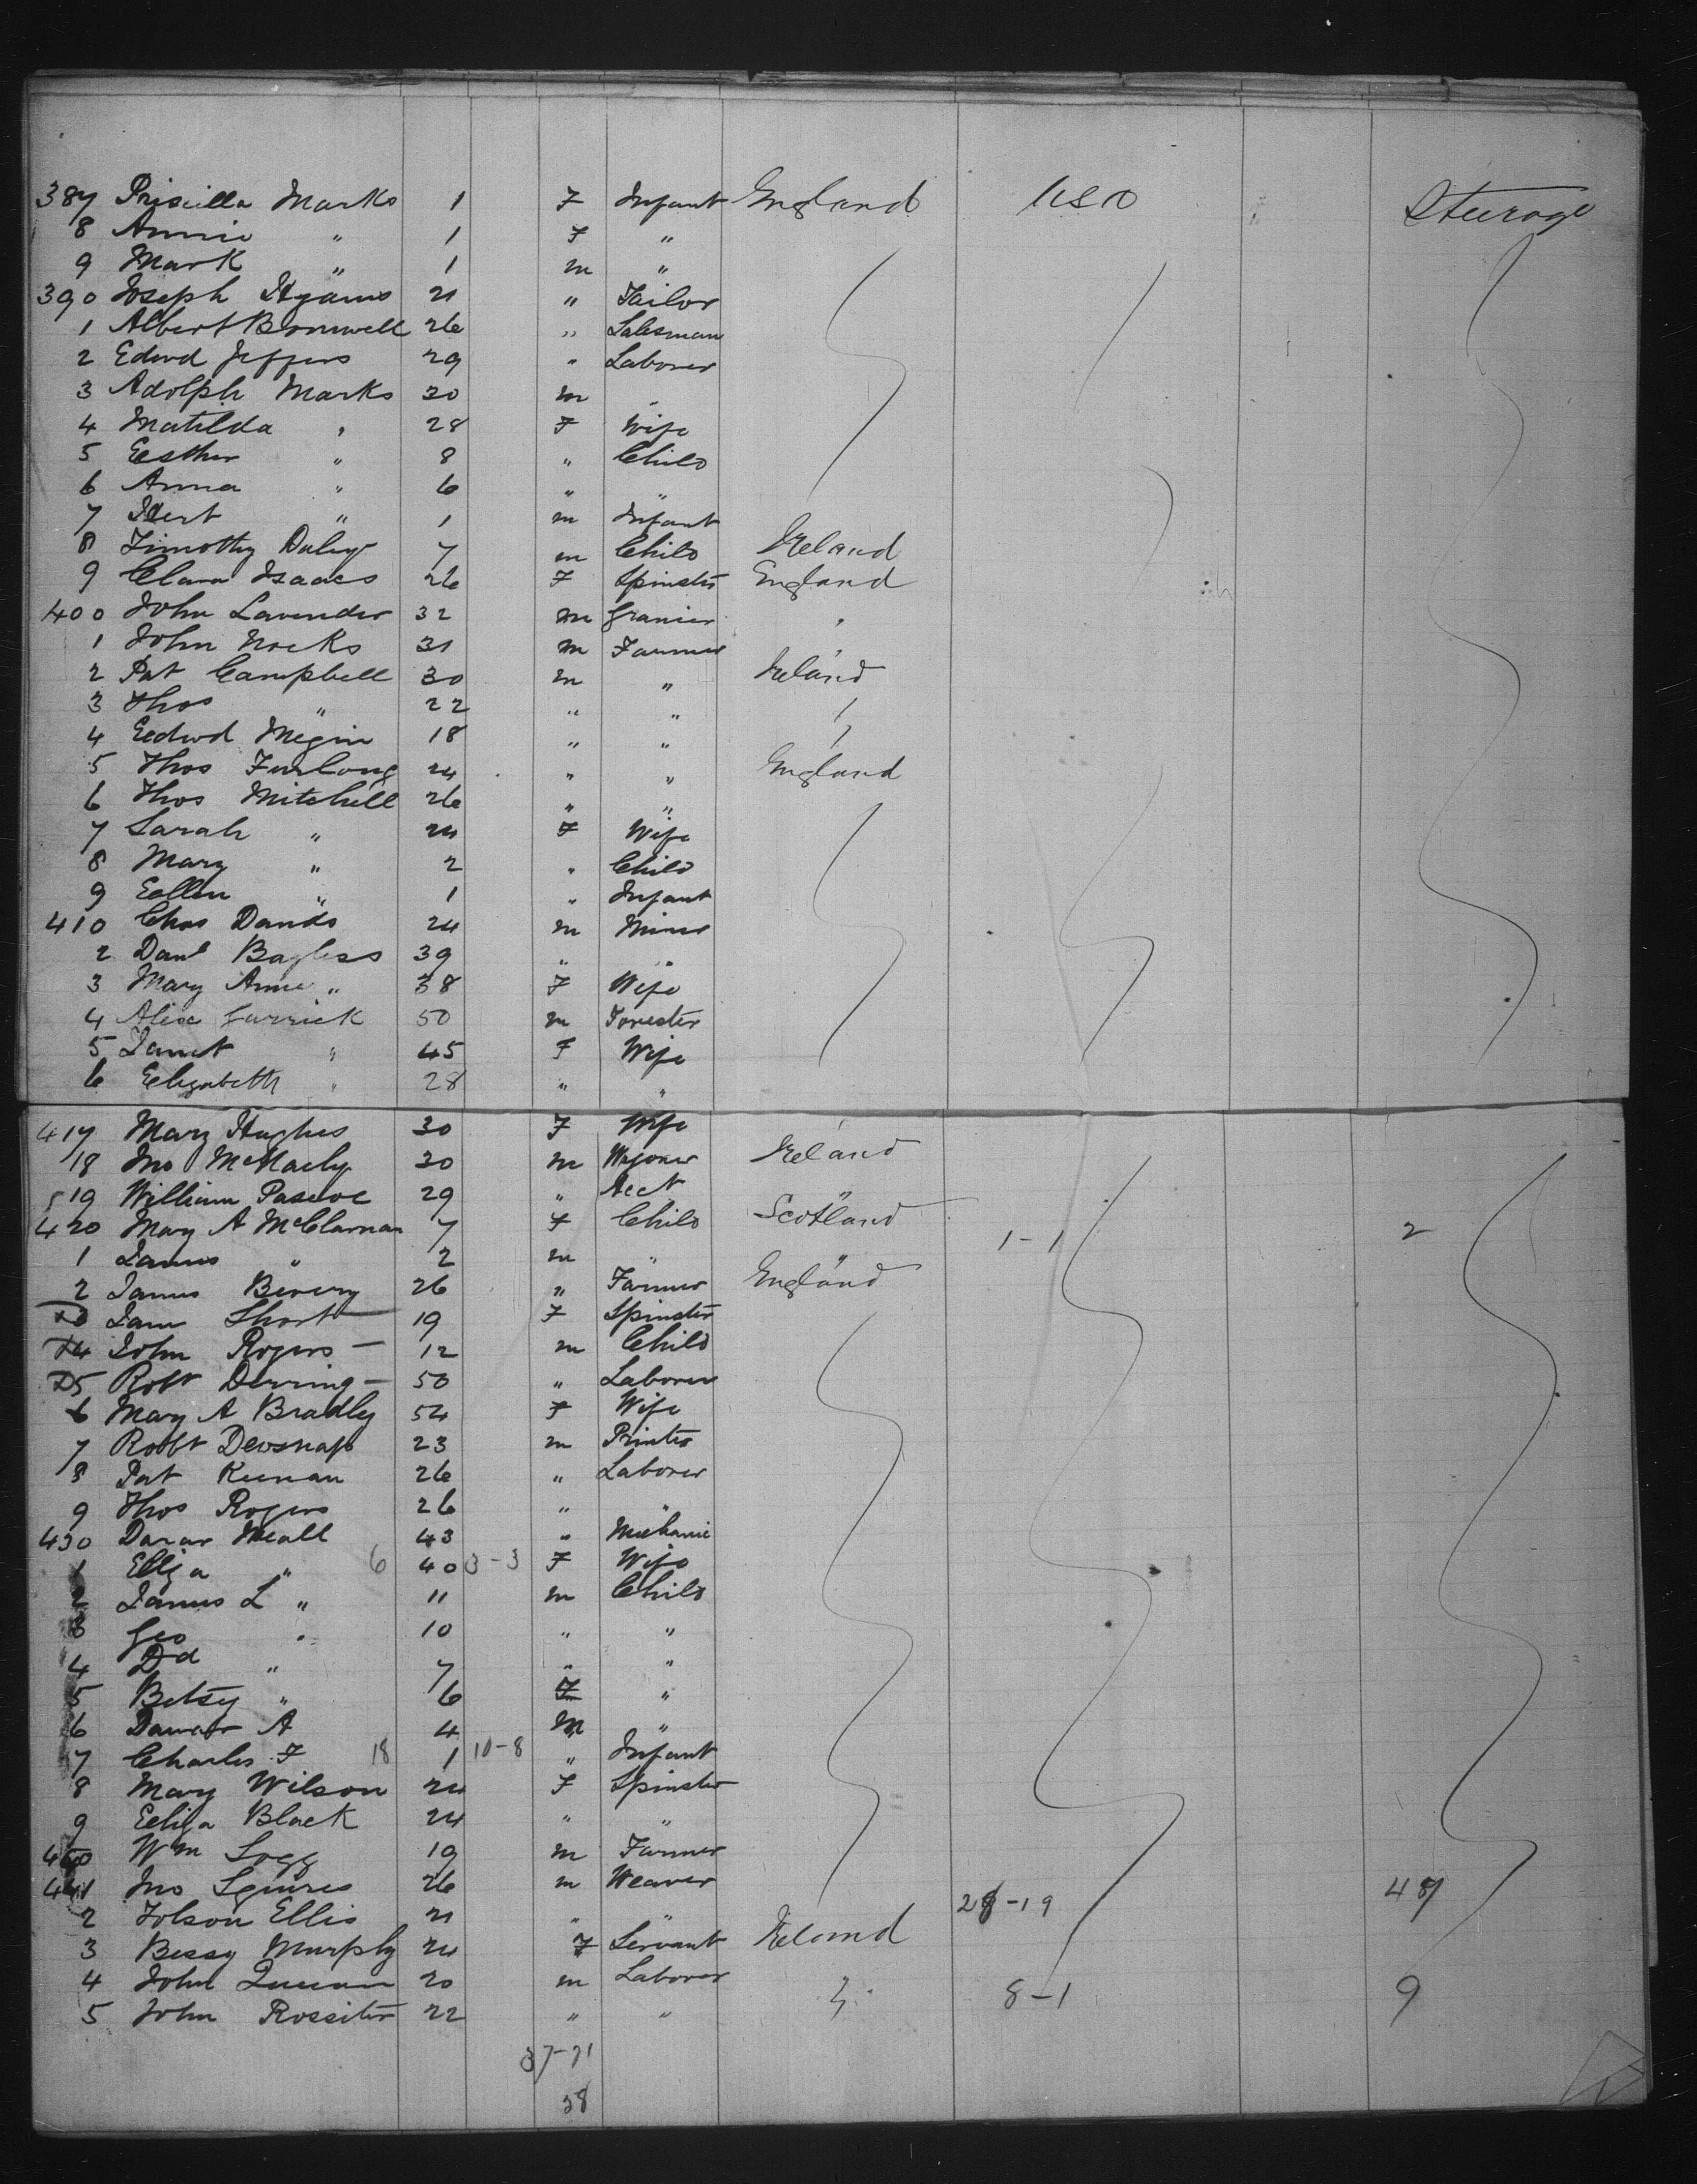 387 Priscilla Marks 1 F Infant England USA Steerage
8 Annie " 1 F "
9 Mark " 1 m "
390 Joseph Hyams 21 " Tailor
1 Albert Bromwell 26 " Salesman
2 Edwd Jeffers 29 " Laborer
3 Adolph Marks 30 m "
4 Matilda " 28 F Wife
5 Esther " 8 " Child
6 Anna " 6 " "
7 " 1 m Infant
8 Timothy Daley 7 m Child Ireland
9 Clara Isaacs 26 F Spinster England
400 John Lavender 32 m "
1 John Nocks 31 m Farmer
2 Pat Campbell 30 m " Ireland
3 Thos " 22 " "
4 Edwd Megin 18 " "
5 Thos Furlong 24 " " England
6 Thos Mitchell 26 " "
7 Sarah " 24 F Wife
8 Mary " 2 " Child
9 Ellen " 1 " Infant
410 Chas Dands 24 m Miner
2 Danl Bayless 39 " "
3 Mary Anne " 38 F Wife
4 Alex Garrick 50 m Forester
5 Janet " 45 F Wife
6 Elizabeth " 28 " "
417 Mary Hughes 30 F Wife
18 Jno McNaely 30 m Wagoner Ireland
19 William Pascoe 29 " Acct "
420 Mary A McClarnan 7 F Child Scotland 1-1 2
1 James " 2 m " "
2 James Bevery 26 " Farmer England
D3 Jane Short 19 F Spinster
D4 John Rogers 12 m Child
D5 Robt Derring 50 " Laborer
6 Mary A Bradley 54 F Wife
7 Robt Devsnap 23 m Printer
8 Pat Keenan 26 " Laborer
9 Thos Rogers 26 " "
430 Meall 43 " Mechanic
1 Eliza " 6 40 3-3 F Wife
2 James L " 11 m Child
3 Geo " 10 " "
4 Dd " 7 " "
5 Betsy " 6 F "
6 A 4 m "
7 Charles F 18 1 10-8 " Infant
8 Mary Wilson 24 F Spinster
9 Eliza Black 24 " "
440 Wm Sogg 19 m Farmer
441 Jno Squires 26 m Weaver
2 Tolson Ellis 21 " " 28-19 48
3 Bessy Murphy 24 F Servant Ireland
4 John 20 m Laborer 8-1 9
5 John Rossiter 22 " "
37-21
38